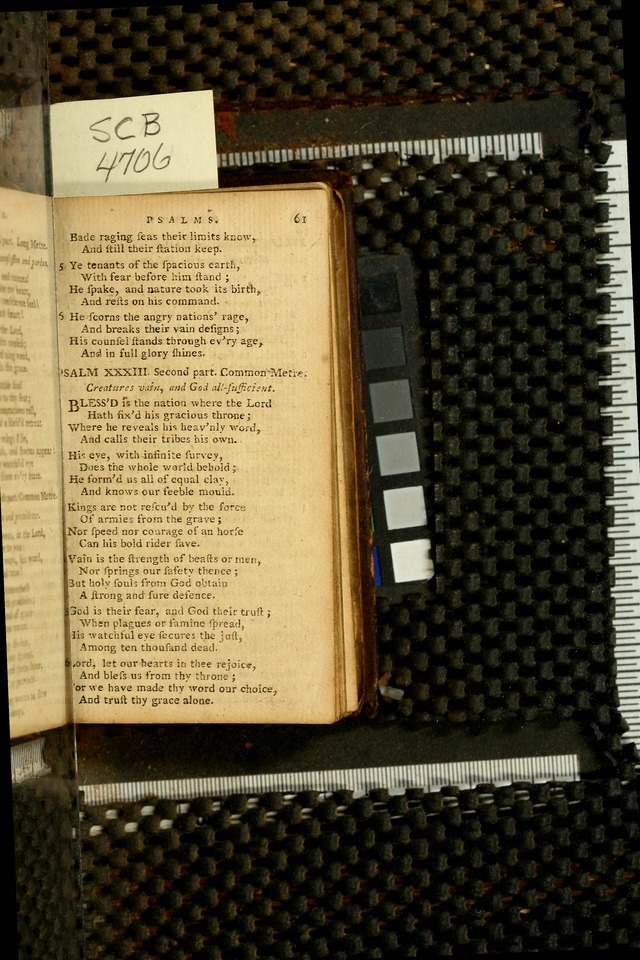 SCB
4706
PSALMS. 61
Bade raging ſeas their limits know,
And ſtill their ſtation keep.
5 Ye tenants of the ſpacious earth,
With fear before him ſtand ;
He ſpake, and nature took its birth,
And reſts on his command.
6 He ſcorns the angry nations' rage,
And breaks their vain deſigns;
His counſel ſtands through ev'ry age,
And in full glory ſhines.
PSALM XXXIII. Second part. Common Metre.
Creatures vain, and God all-ſufficient.
BLESS'D is the nation where the Lord
Hath fix'd his gracious throne ;
Where he reveals his heav'nly word,
And calls their tribes his own.
His eye, with infinite ſurvey,
Does the whole world behold ;
He form'd us all of equal clay,
And knows our feeble mould.
Kings are not reſcu'd by the force
Of armies from the grave ;
Nor ſpeed nor courage of an horſe
Can his bold rider ſave.
Vain is the ſtrength of beaſts or men,
Nor ſprings our ſafety thence ;
But holy ſouls from God obtain
A ſtrong and ſure defence.
God is their fear, and God their truſt ;
When plagues or famine ſpread,
His watchful eye ſecures the juſt,
Among ten thouſand dead.
Lord, let our hearts in thee rejoice,
And bleſs us from thy throne ;
For we have made thy word our choice,
And truſt thy grace alone.